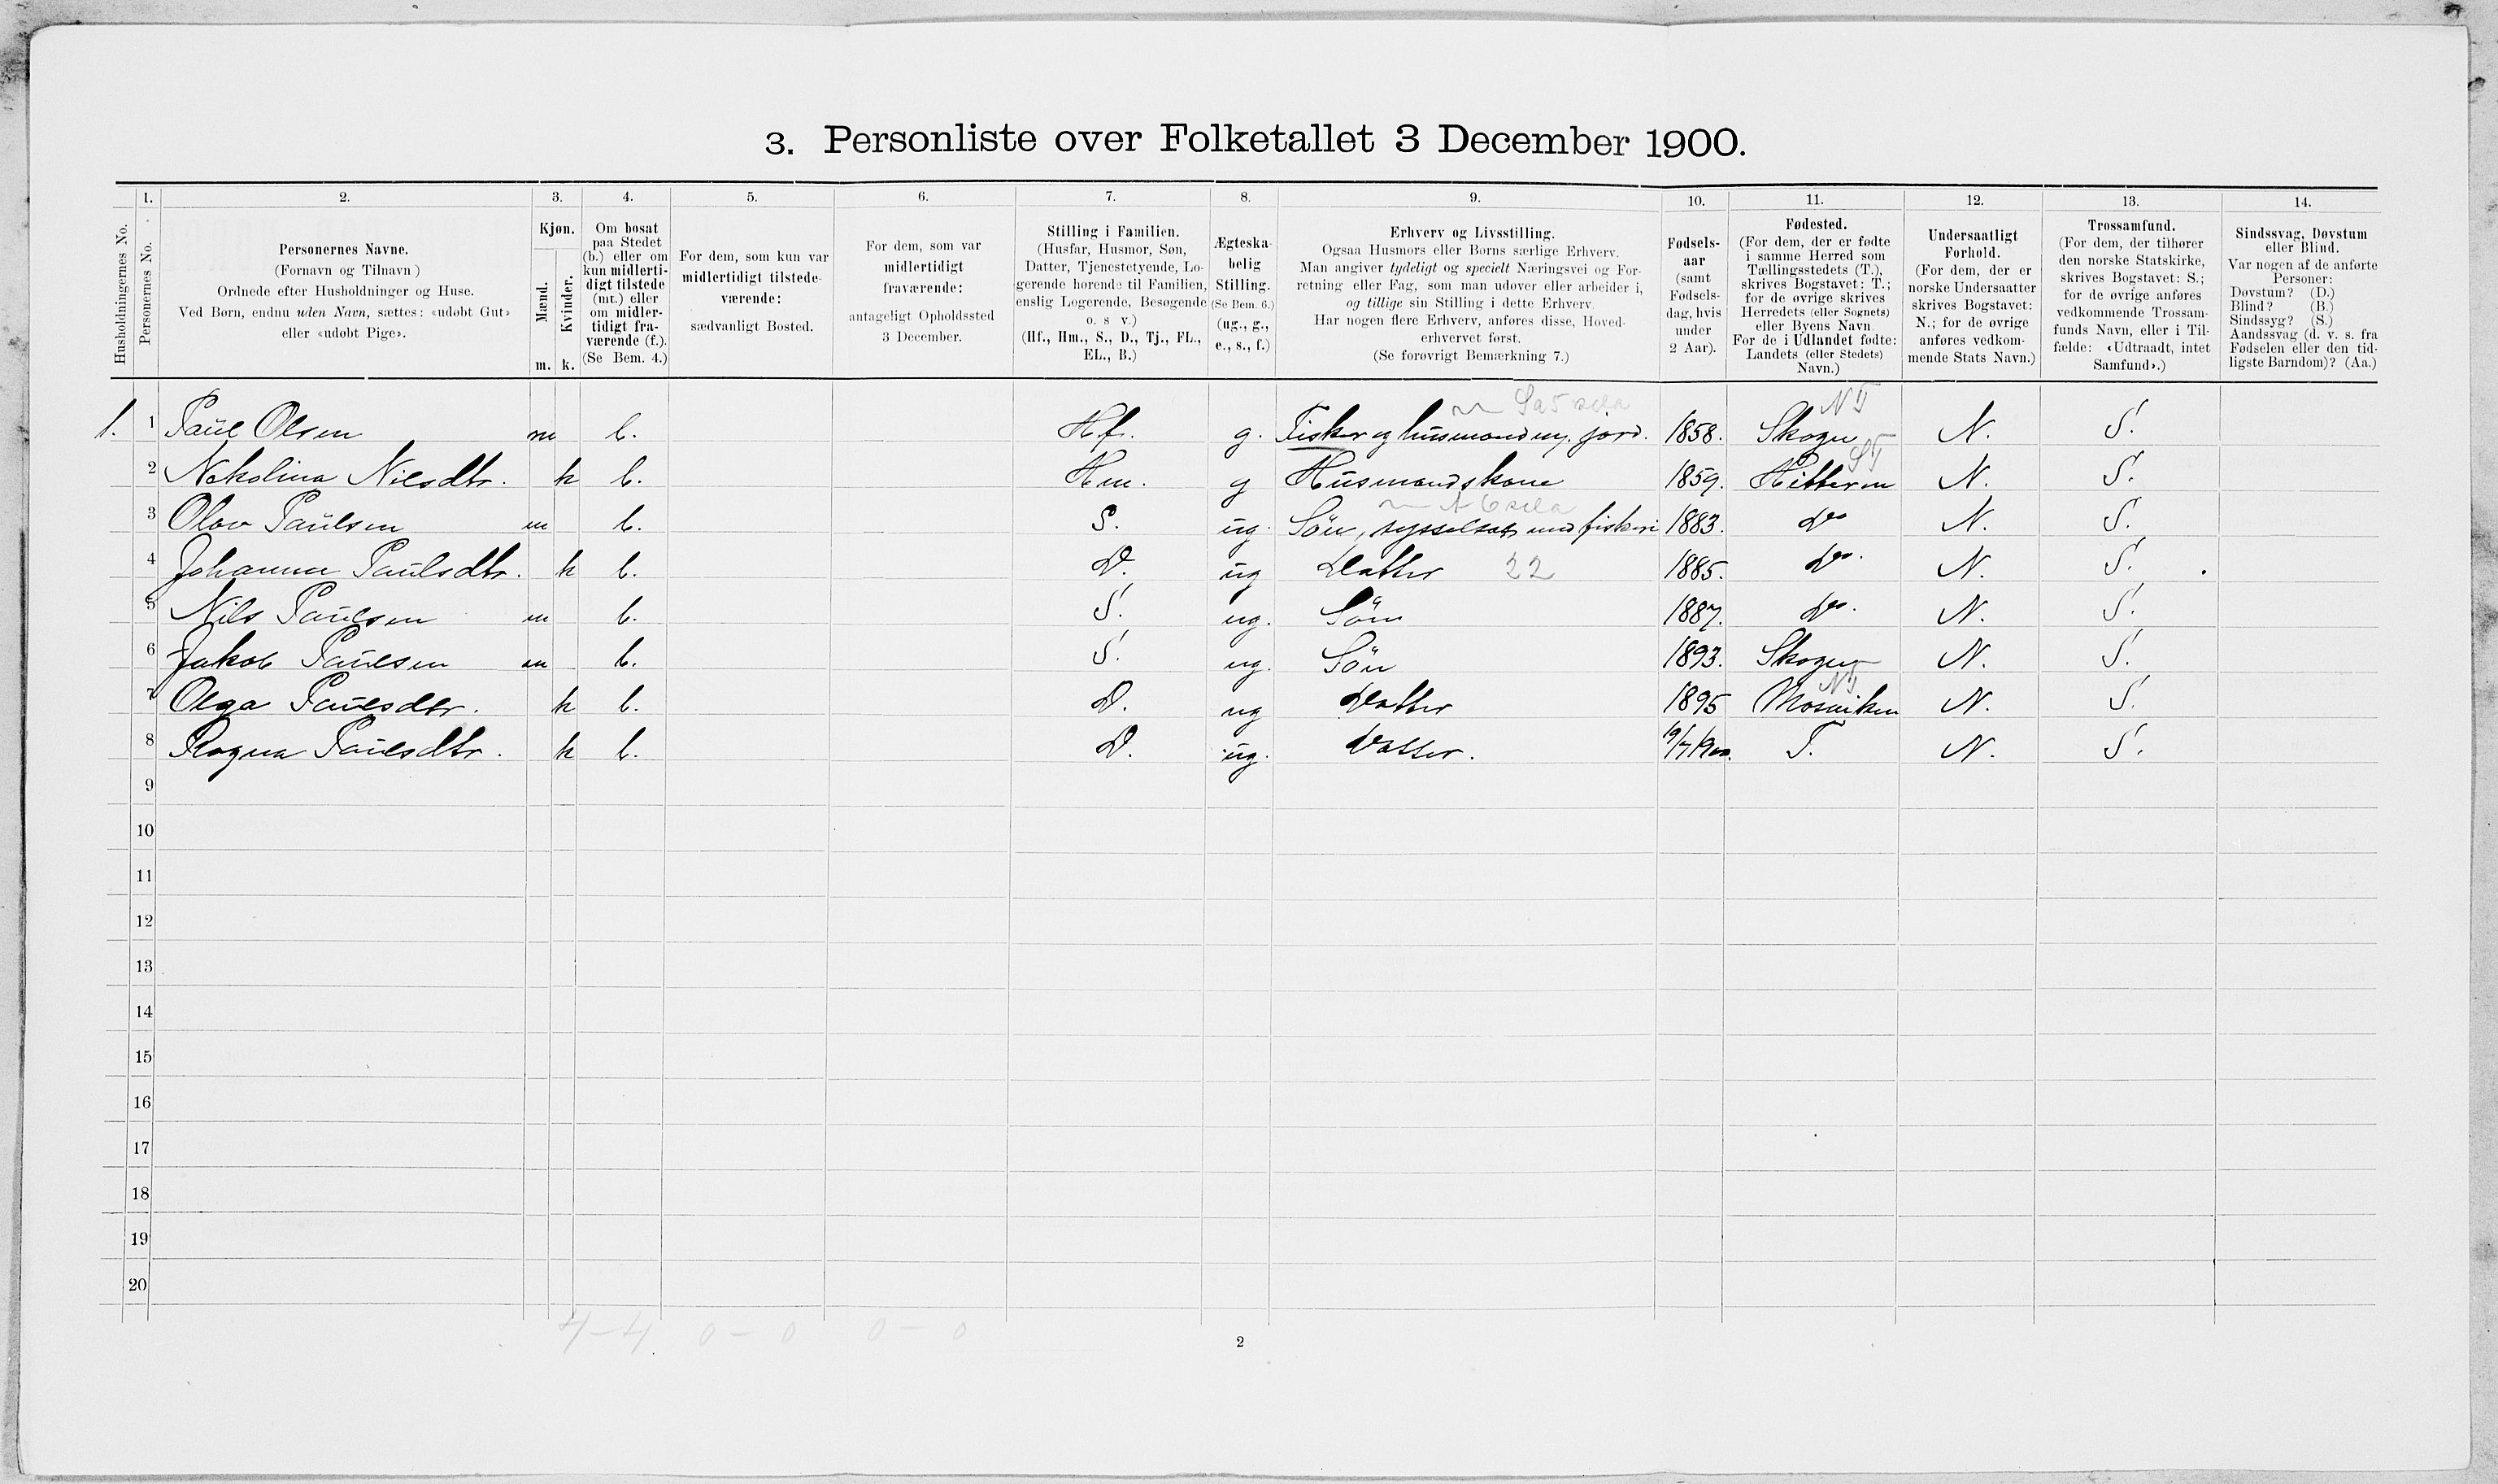 3. Personliste over Folketallet 3 December 1900.
1. 2. 3. 4. 5. 6. 7. 8. 9. 10. 11. 12. 13. 14.
Husholdningernes No.
Personernes No.
Personernes Navne.
(Fornavn og Tilnavn)
Ordnede efter Husholdninger og Huse.
Ved Børn, endnu uden Navn, sættes: «udøbt Gut»
eller «udøbt Pige».
Kjøn.
Mænd.
Kvinder.
m. k.
Om bosat
paa Stedet
(b.) eller om
kun midlerti-
digt tilstede
(mt.) eller
om midler-
tidigt fra-
værende (f.).
(Se Bem. 4.)
For dem, som kun var
midlertidigt tilstede-
værende:
sædvanligt Bosted.
For dem, som var
midlertidigt
fraværende:
antageligt Opholdssted
3 December.
Stilling i Familien.
(Husfar, Husmor, Søn,
Datter, Tjenestetyende, Lo-
gerende hørende til Familien,
enslig Logerende, Besøgende
o. s v.)
(Hf., Hm., S., D., Tj., FL.,
EL., B.)
Ægteska-
belig
Stilling.
(Se Bem. 6.)
(ug., g.,
e., s., f.)
Erhverv og Livsstilling.
Ogsaa Husmors eller Børns særlige Erhverv.
Man angiver tydeligt og specielt Næringsvei og For-
retning eller Fag, som man udøver eller arbeider i,
og tillige sin Stilling i dette Erhverv.
Har nogen flere Erhverv, anføres disse, Hoved-
erhvervet først.
(Se forøvrigt Bemærkning 7.)
Fødsels-
aar
(samt
Fødsels-
dag, hvis
under
2 Aar).
Fødested.
(For dem, der er fødte
i samme Herred som
Tællingsstedets (T.),
skrives Bogstavet: T.;
for de øvrige skrives
Herredets (eller Sognets)
eller Byens Navn.
For de i Udlandet fødte:
Landets (eller Stedets)
Navn.)
Undersaatligt
Forhold.
(For dem, der er
norske Undersaatter
skrives Bogstavet:
N.; for de øvrige
anføres vedkom-
mende Stats Navn.)
Trossamfund.
(For dem, der tilhører
den norske Statskirke,
skrives Bogstavet: S.;
for de øvrige anføres
vedkommende Trossam-
funds Navn, eller i Til-
fælde: «Udtraadt, intet
Samfund».)
Sindssvag, Døvstum
eller Blind.
Var nogen af de anførte
Personer:
Døvstum? (D.)
Blind? (B.)
Sindssyg? (S.)
Aandssvag (d. v. s. fra
Fødselen eller den tid-
ligste Barndom)? (Aa.)
NT
1. 1 Paul Olsen m b. Hf. g. Fisker og husmand m. jord. 1858. Skogn N. S.
ST
2 Nekolina Nilsdtr. k b. Hm. g Husmandskone 1859. Hitteren N. S.
3 Olav Paulsen m b. S. ug. Sön, sysselsat med fiskeri 1883. do N. S.
4 Johanna Paulsdtr. k b. D. ug Datter 22 1885. do. N. S.
5 Nils Paulsen m b. S. ug. Sön 1887. do. N. S.
6 Jakob Paulsen m b. S. ug. Sön 1893. Skogn N. S.
NT
7 Olga Paulsdtr. k b. D. ug Datter 1895 Mosviken N. S.
8 Ragna Paulsdtr. k b. D. ug. Datter. 19/7 1900. T. N. S.
9
10
11
12
13
14
15
16
17
18
19
20
4-4 0-0 0-0
2